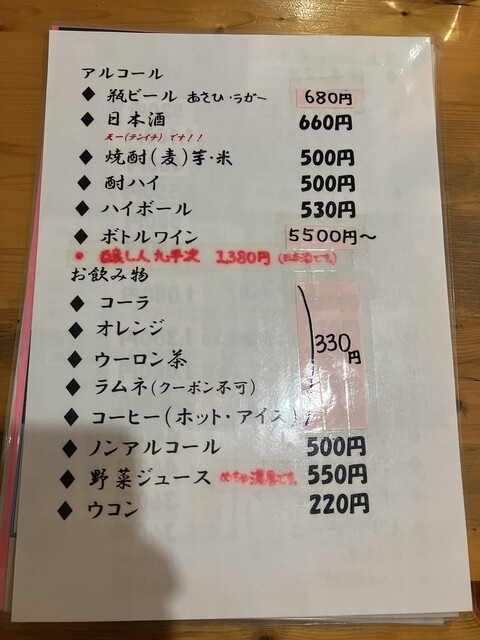 アルコール
◆ 瓶ビール あさひ・ラガー 680円
◆ 日本酒 660円
天一(テンイチ)です!!
◆ 焼酎(麦)芋・米 500円
◆ 酎ハイ 500円
◆ ハイボール 530円
◆ ボトルワイン 5500円～
● 醸し人九平次 1,380円 (日本酒です。)
お飲み物
◆ コーラ
◆ オレンジ
◆ ウーロン茶 330円
◆ ラムネ(クーポン不可)
◆ コーヒー(ホット・アイス)
◆ ノンアルコール 500円
◆ 野菜ジュース めちゃ濃厚です。 550円
◆ ウコン 220円